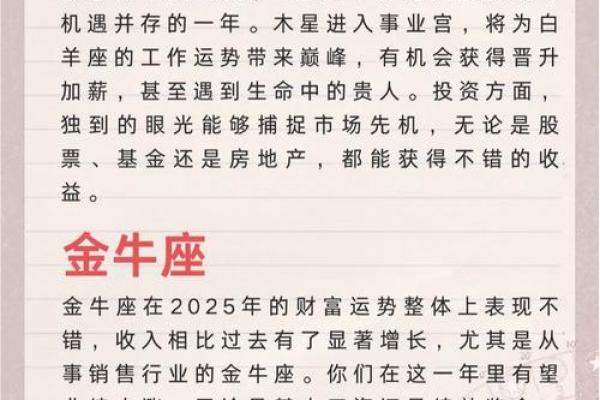 机遇并存的一年。木星进入事业宫，将为白
羊座的工作运势带来巅峰，有机会获得晋升
加薪，甚至遇到生命中的贵人。投资方面，
独到的眼光能够捕捉市场先机，无论是股
票、基金还是房地产，都能获得不错的收
益。
金牛座
金牛座在2025年的财富运势整体上表现不
错，收入相比过去有了显著增长，尤其是从
事销售行业的金牛座。你们在这一年里有望